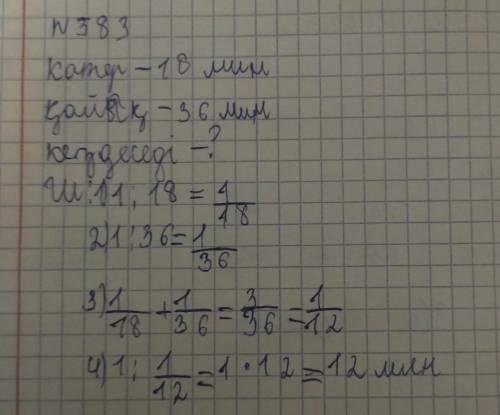 N583
катер – 18 мин
қайық – 36 мин
кездеседі – ?
Ш: 1) 1 : 18 = 1/18
2) 1 : 36 = 1/36
3) 1/18 + 1/36 = 3/36 = 1/12
4) 1 : 1/12 = 1 · 12 = 12 мин